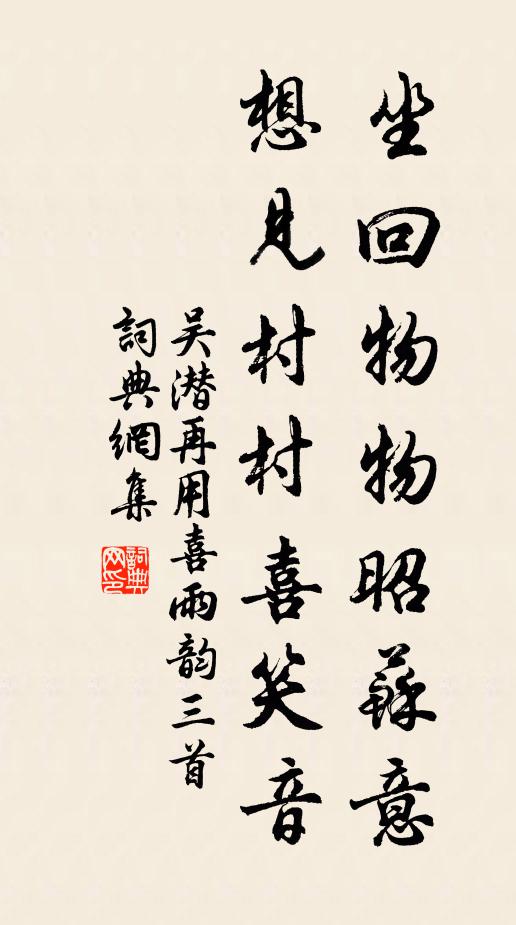 坐回物物昭蘇意
想見村村喜笑音
吴潜再用喜雨韵三首
詞典網集
詞典网印